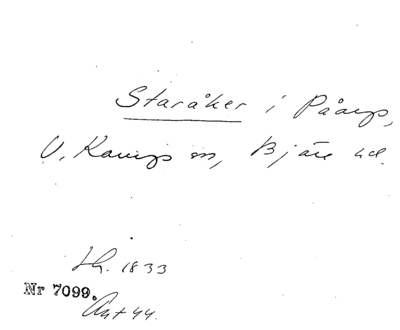 Staråker i Påarp,
V. Karup sn, Bjäre hd.
Lh. 1833
Nr 7099.
Ant 44.